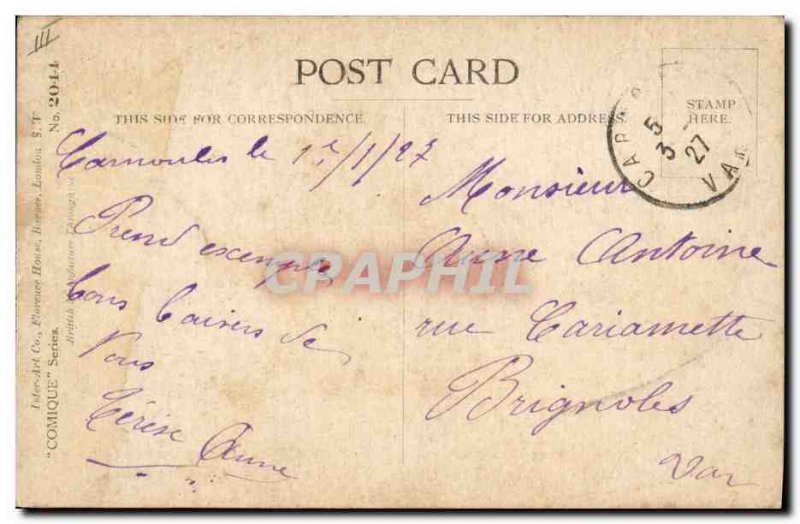 III
POST CARD
THIS SIDE FOR CORRESPONDENCE.
THIS SIDE FOR ADDRESS
STAMP
HERE.
5
3
27
VAR
Carnoules le 1er/1/27
Prend exemple
bons baisers de
Vous
Térèse Aune
Monsieur
Aune Antoine
rue Cariamette
Brignoles
Var
CRAPHIL
Inter-Art Co., Florence House, Barnes, London S.W
"COMIQUE" Series.
No. 2044
British Manufacture Through